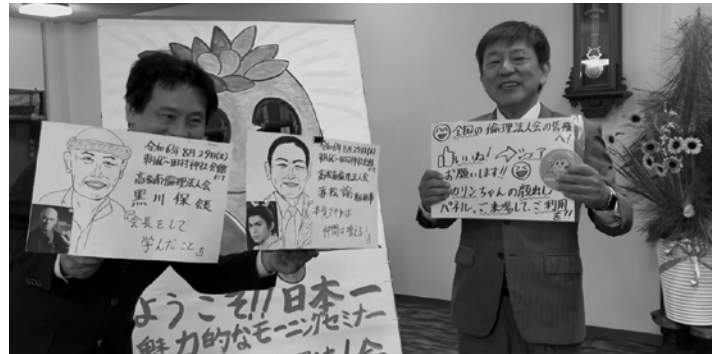 令和6年8月29日(木)
田村神社会館
高松南倫理法人会
黒川 保 会長
『会長をして
学んだこと』
令和6年8月29日(木)
田村神社会館
高松南倫理法人会
仲間は増える!』
全国の倫理法人会の皆様
へ!
いいね! シェア
お願いします!!
カリンちゃんの顔出し
パネル、ご来場して、ご利用
ようこそ!!日本一
魅力的なモーニングセミナー